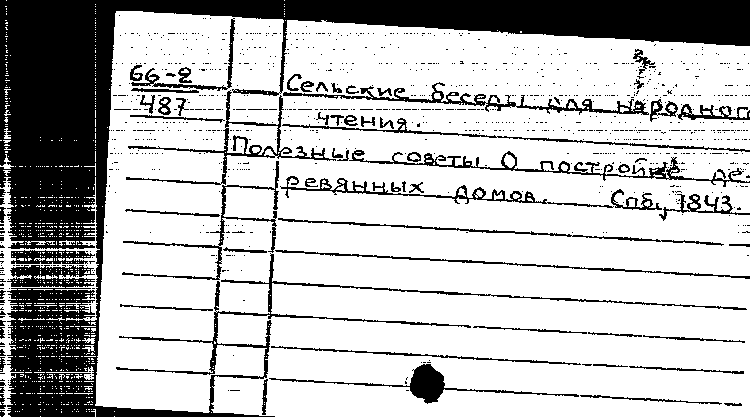 66-2
487
Сельские беседы для народного
чтения.
Полезные советы о постройке де-
ревянных домов. Спб, 1843.